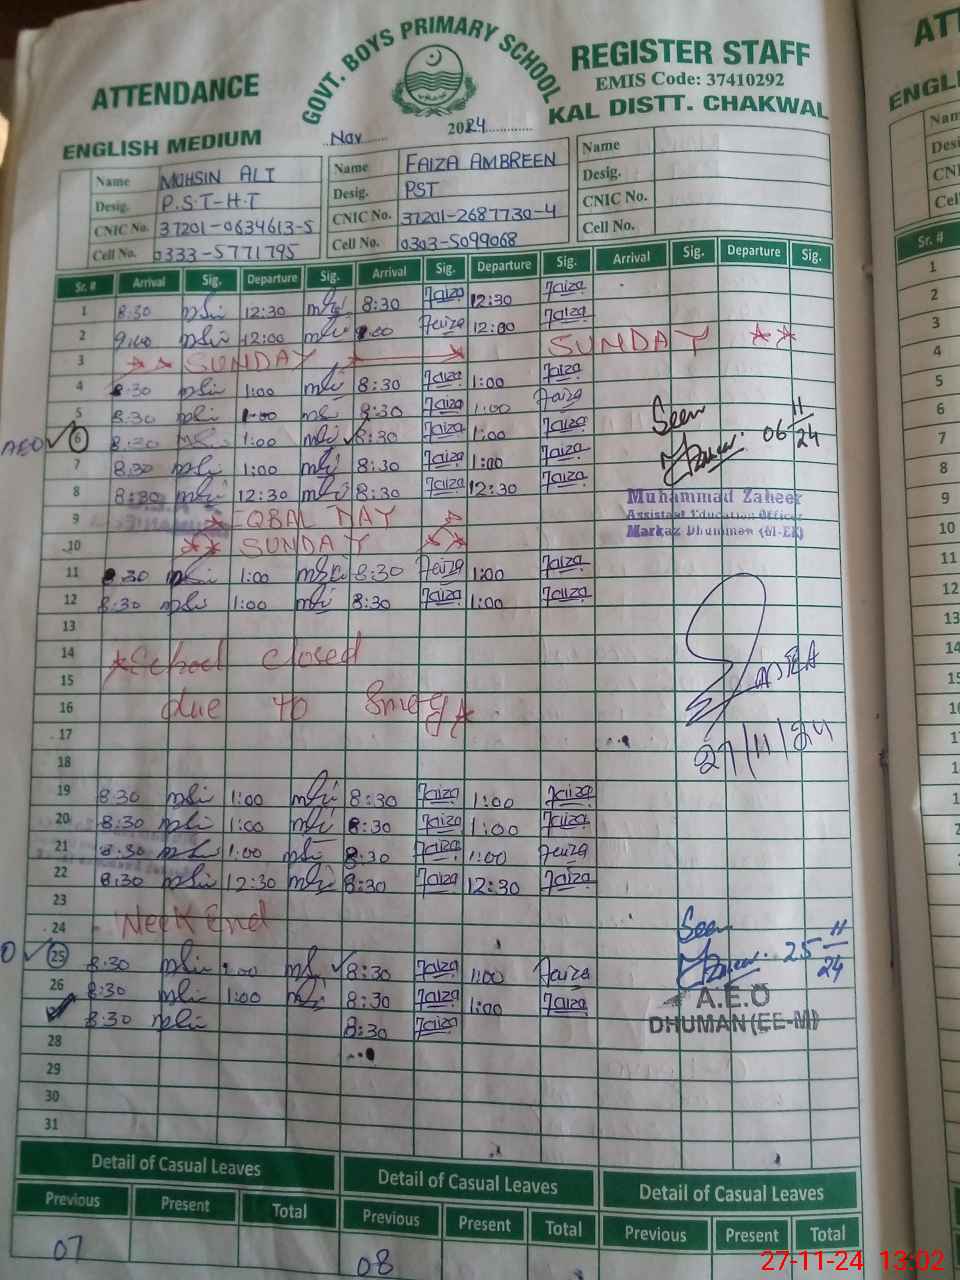 GOVT. BOYS PRIMARY SCHOOL
ATTENDANCE REGISTER STAFF
EMIS Code: 37410292
KAL DISTT. CHAKWAL
ENGLISH MEDIUM Nov 2024
Name MOHSIN ALI Name FAIZA AMBREEN Name
Desig. P.S.T-H.T Desig. PST Desig.
CNIC No. 37201-0634613-5 CNIC No. 37201-2687730-4 CNIC No.
Cell No. 0333-5771795 Cell No. 0303-5099068 Cell No.
Sr. # Arrival Sig. Departure Sig. Arrival Sig. Departure Sig. Arrival Sig. Departure Sig.
1 8:30 12:30 8:30 Faiza 12:30 Faiza
2 9:00 12:00 Faiza 12:00 Faiza
3 SUNDAY SUNDAY
4 8:30 1:00 8:30 Faiza 1:00 Faiza
5 8:30 1:00 8:30 Faiza 1:00 Faiza
AEO 6 8:30 1:00 8:30 Faiza 1:00 Faiza Seen 06 11/24
7 8:30 1:00 8:30 Faiza 1:00 Faiza
8 8:30 12:30 8:30 Faiza 12:30 Faiza
Muhammad Zaheer
Assistant Education Officer
Markaz Dhumman (M-EE)
9 IQBAL DAY
10 SUNDAY
11 8:30 1:00 8:30 Faiza 1:00 Faiza
12 8:30 1:00 8:30 Faiza 1:00 Faiza
13
14 School closed
15
16 due to Smog
17 27/11/24
18
19 8:30 1:00 8:30 Faiza 1:00 Faiza
20 8:30 1:00 8:30 Faiza 1:00 Faiza
21 8:30 1:00 8:30 Faiza 1:00 Faiza
22 8:30 12:30 8:30 Faiza 12:30 Faiza
23
24 Week End
25 8:30 8:30 Faiza 1:00 Faiza Seen 25 11/24
26 8:30 1:00 8:30 Faiza 1:00 Faiza
A.E.O
DHUMAN (EE-M)
8:30 8:30 Faiza
28
29
30
31
Detail of Casual Leaves Detail of Casual Leaves Detail of Casual Leaves
Previous Present Total Previous Present Total Previous Present Total
07 08
27-11-24 13:02
ATT
ENGLI
Nam
Desi
CNI
Cell
Sr. #
1
2
3
4
5
6
7
8
9
10
11
12
13
14
15
16